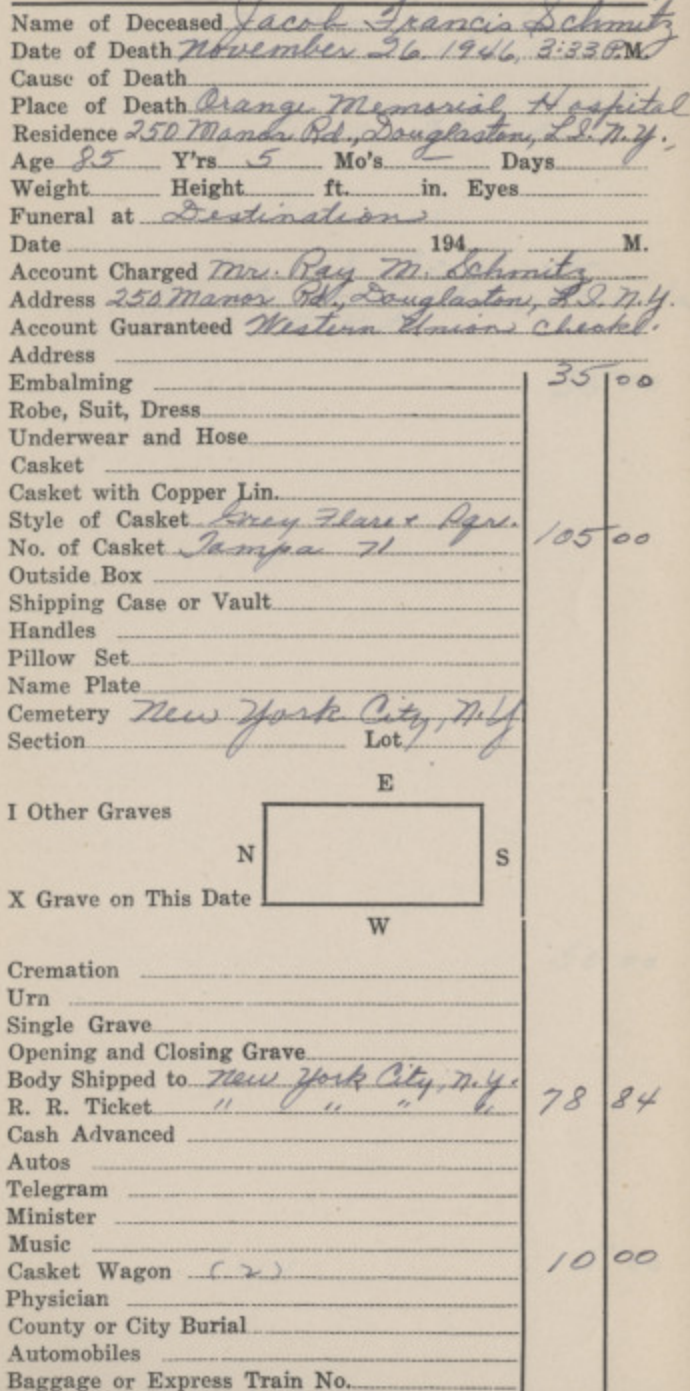 Name of Deceased Jacob Francis Schmitz
Date of Death November 26, 1946, 3:33 P.M.
Cause of Death
Place of Death Orange Memorial Hospital
Residence 250 Manor Rd., Douglaston, L.I. N.Y.
Age 85 Y'rs 5 Mo's — Days
Weight Height ft. in. Eyes
Funeral at Destination
Date 194 M.
Account Charged Mr. Ray M. Schmitz
Address 250 Manor Rd., Douglaston, L.I. N.Y.
Account Guaranteed Western Union check.
Address
Embalming 35 00
Robe, Suit, Dress
Underwear and Hose
Casket
Casket with Copper Lin.
Style of Casket Grey Flare
No. of Casket Tampa 71 105 00
Outside Box
Shipping Case or Vault
Handles
Pillow Set
Name Plate
Cemetery New York City, N.Y
Section Lot
E
I Other Graves
N S
X Grave on This Date
W
Cremation
Urn
Single Grave
Opening and Closing Grave
Body Shipped to New York City, N.Y.
R. R. Ticket " " " " 78 84
Cash Advanced
Autos
Telegram
Minister
Music
Casket Wagon (2) 10 00
Physician
County or City Burial
Automobiles
Baggage or Express Train No.